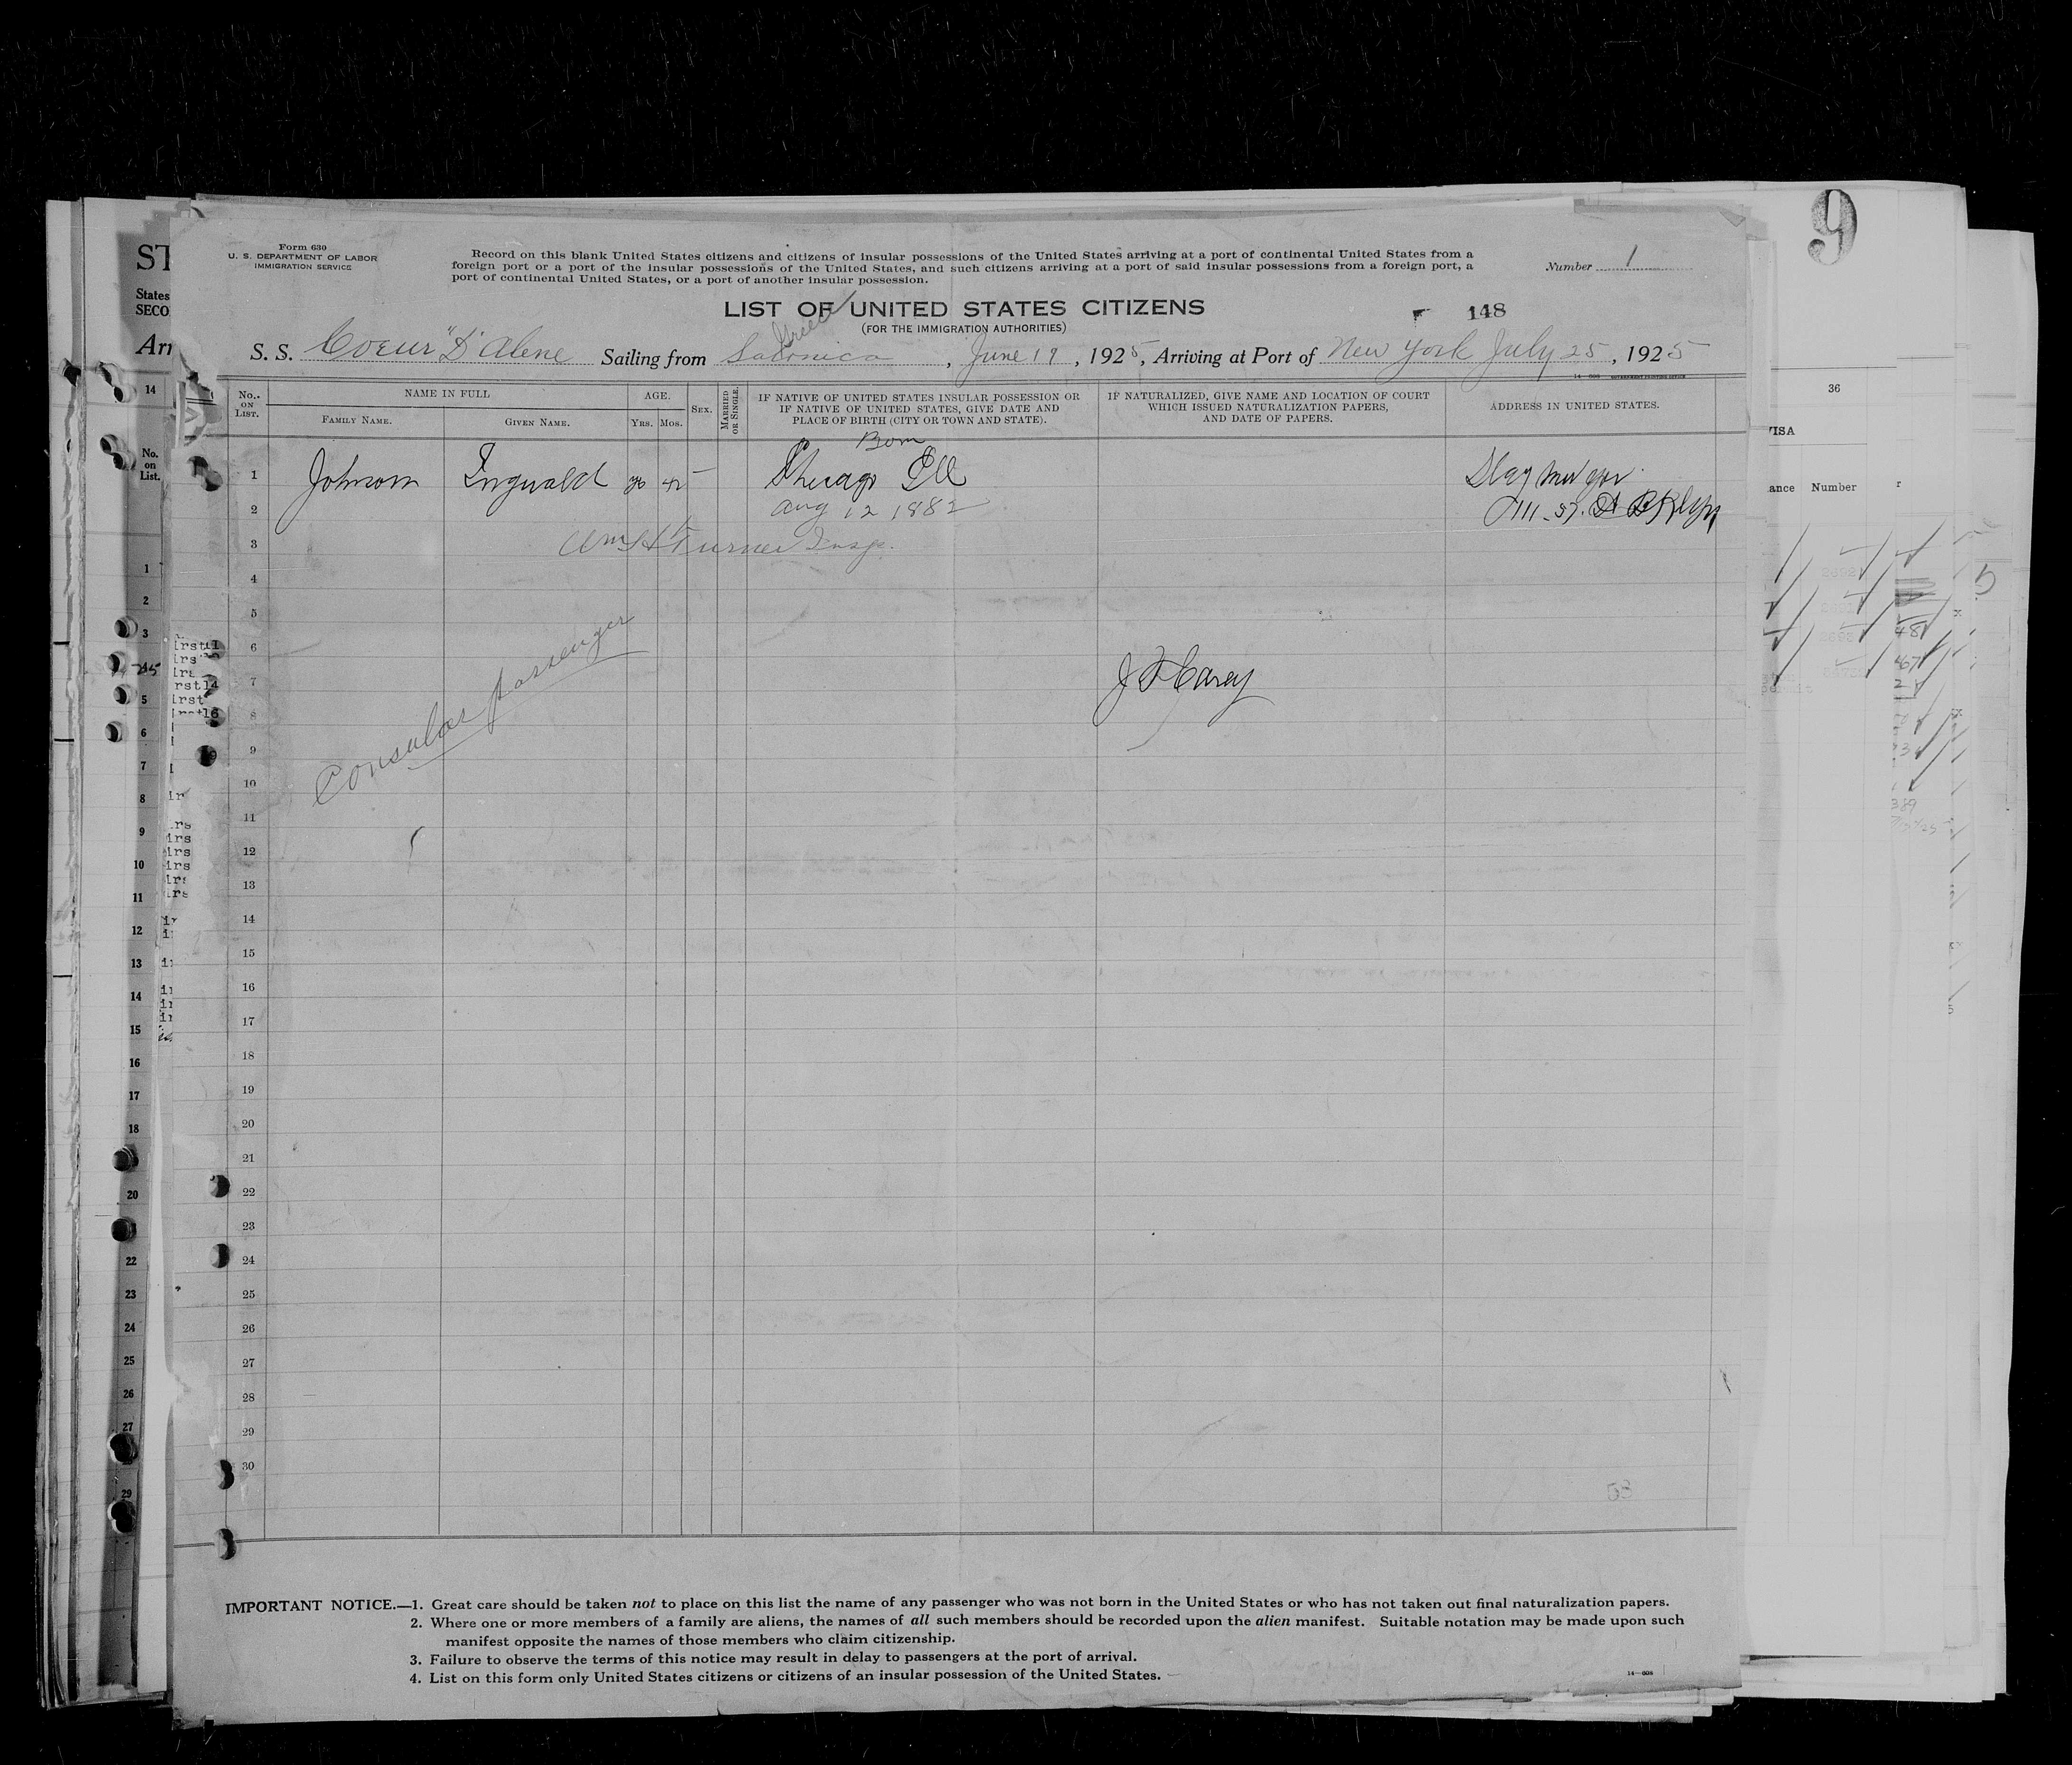 Form 630
U. S. DEPARTMENT OF LABOR
IMMIGRATION SERVICE
Record on this blank United States citizens and citizens of insular possessions of the United States arriving at a port of continental United States from a
foreign port or a port of the insular possessions of the United States, and such citizens arriving at a port of said insular possessions from a foreign port, a
port of continental United States, or a port of another insular possession.
Number 1
9
LIST OF UNITED STATES CITIZENS
(FOR THE IMMIGRATION AUTHORITIES)
148
Greece
S. S. Coeur "D'Alene Sailing from Salonica, June 19, 1925, Arriving at Port of New York July 25, 1925
No. ON LIST.
NAME IN FULL
FAMILY NAME.
GIVEN NAME.
AGE.
YRS. MOS.
SEX.
MARRIED OR SINGLE.
IF NATIVE OF UNITED STATES INSULAR POSSESSION OR
IF NATIVE OF UNITED STATES, GIVE DATE AND
PLACE OF BIRTH (CITY OR TOWN AND STATE).
IF NATURALIZED, GIVE NAME AND LOCATION OF COURT
WHICH ISSUED NATURALIZATION PAPERS,
AND DATE OF PAPERS.
ADDRESS IN UNITED STATES.
Born
1 Johnson Ingwald Chicago Ill
2 Aug 12 1882
3 Wm H Turner Insp.
4
5
6
7 J F Carey
8
9
Consular passenger
10
11
12
13
14
15
16
17
18
19
20
21
22
23
24
25
26
27
28
29
30
53
IMPORTANT NOTICE.—1. Great care should be taken not to place on this list the name of any passenger who was not born in the United States or who has not taken out final naturalization papers.
2. Where one or more members of a family are aliens, the names of all such members should be recorded upon the alien manifest. Suitable notation may be made upon such
manifest opposite the names of those members who claim citizenship.
3. Failure to observe the terms of this notice may result in delay to passengers at the port of arrival.
4. List on this form only United States citizens or citizens of an insular possession of the United States.
14—608